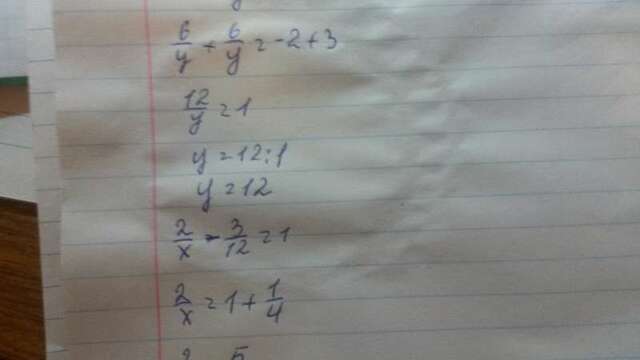 6/y + 6/y = -2+3
12/y = 1
y = 12:1
y = 12
2/x - 3/12 = 1
2/x = 1 + 1/4